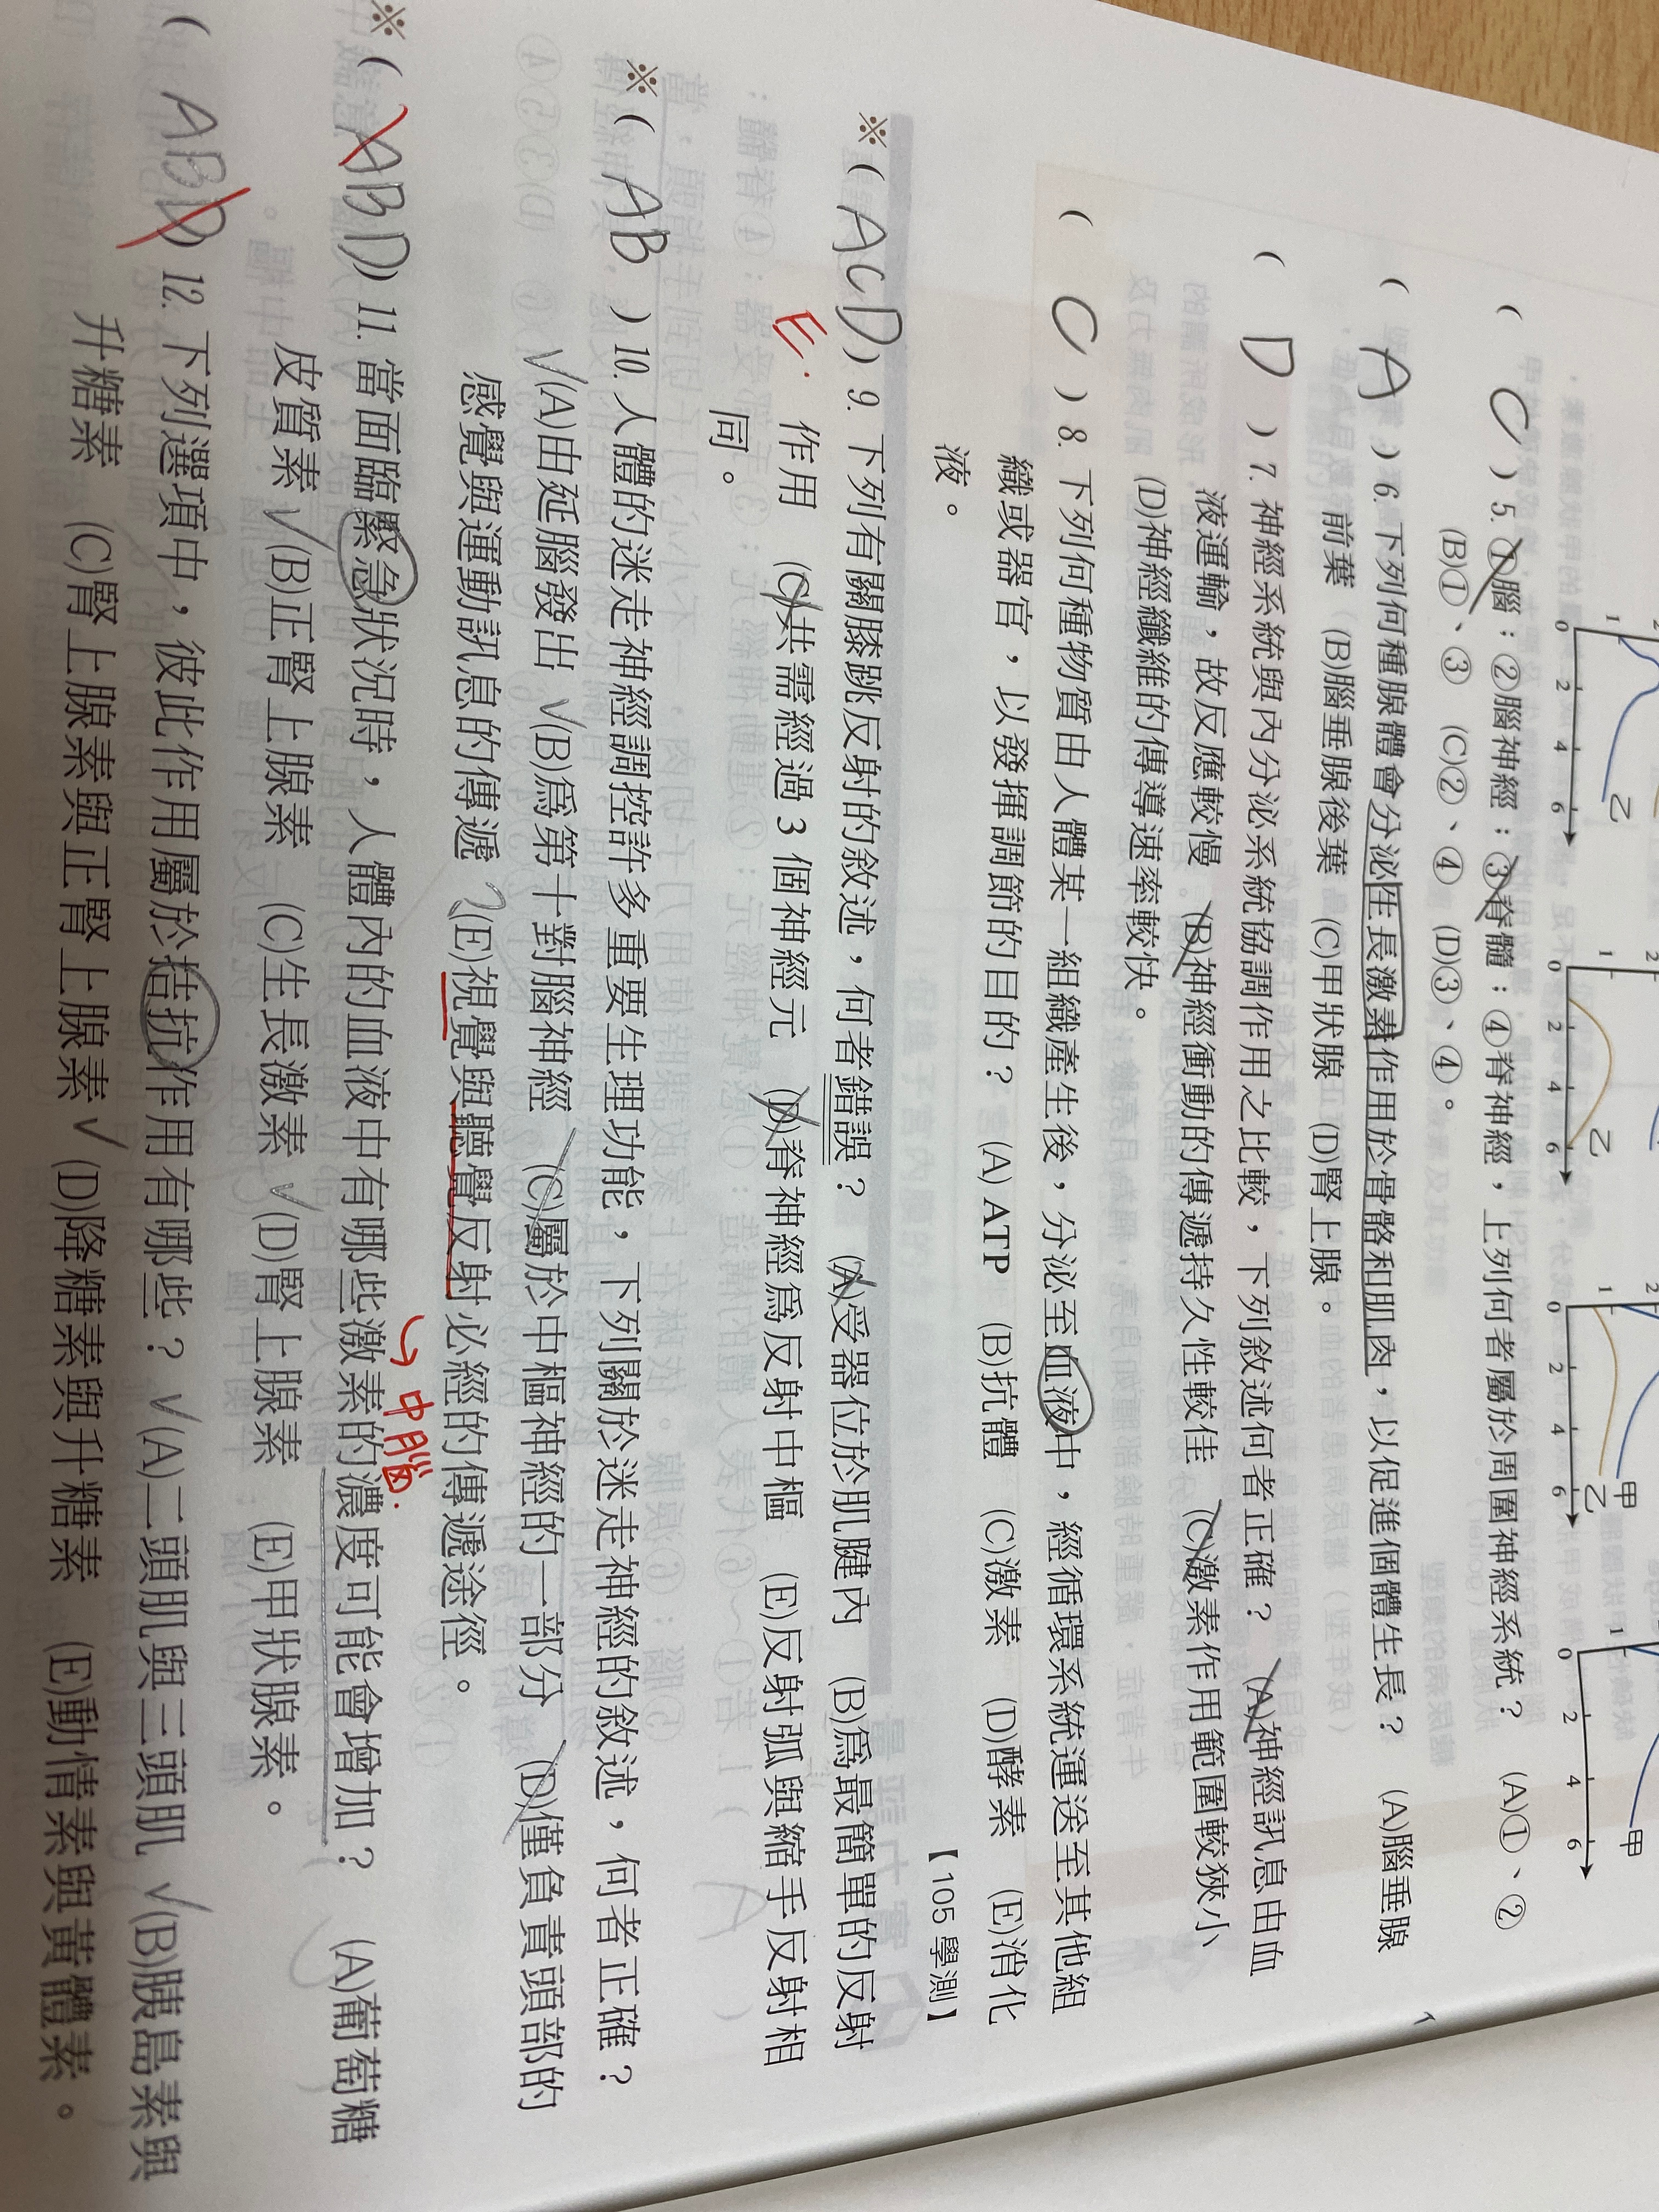 2 2 2
1 1 1 1
0 2 4 6 0 2 4 6 0 2 4 6 0 2 4 6
乙 乙 甲 乙 甲
( C ) 5. ①腦；②腦神經；③脊髓；④脊神經，上列何者屬於周圍神經系統？ (A)①、②
(B)①、③ (C)②、④ (D)③、④。
( A ) 6. 下列何種腺體會分泌生長激素作用於骨骼和肌肉，以促進個體生長？ (A)腦垂腺
前葉 (B)腦垂腺後葉 (C)甲狀腺 (D)腎上腺。
( D ) 7. 神經系統與內分泌系統協調作用之比較，下列敘述何者正確？ (A)神經訊息由血
液運輸，故反應較慢 (B)神經衝動的傳遞持久性較佳 (C)激素作用範圍較狹小
(D)神經纖維的傳導速率較快。
( C ) 8. 下列何種物質由人體某一組織產生後，分泌至血液中，經循環系統運送至其他組
織或器官，以發揮調節的目的？ (A) ATP (B)抗體 (C)激素 (D)酵素 (E)消化
液。 【105 學測】
※( ACD ) 9. 下列有關膝跳反射的敘述，何者錯誤？ (A)受器位於肌腱內 (B)為最簡單的反射
E. 作用 (C)共需經過 3 個神經元 (D)脊神經為反射中樞 (E)反射弧與縮手反射相
同。
※( AB ) 10. 人體的迷走神經調控許多重要生理功能，下列關於迷走神經的敘述，何者正確？
✓(A)由延腦發出 ✓(B)為第十對腦神經 (C)屬於中樞神經的一部分 (D)僅負責頭部的
感覺與運動訊息的傳遞 ?(E)視覺與聽覺反射必經的傳遞途徑。
↳中腦.
※( ABD ) 11. 當面臨緊急狀況時，人體內的血液中有哪些激素的濃度可能會增加？ (A)葡萄糖
皮質素 ✓(B)正腎上腺素 (C)生長激素 ✓(D)腎上腺素 (E)甲狀腺素。
( ABD ) 12. 下列選項中，彼此作用屬於拮抗作用有哪些？ ✓(A)二頭肌與三頭肌 ✓(B)胰島素與
升糖素 (C)腎上腺素與正腎上腺素 ✓(D)降糖素與升糖素 (E)動情素與黃體素。